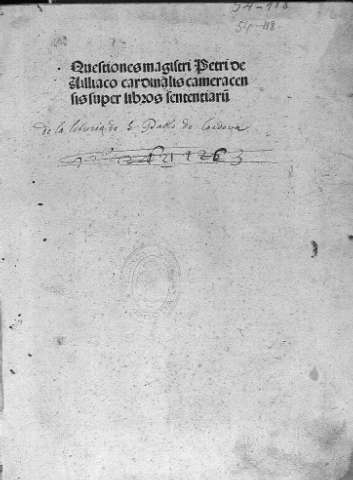 54-118
54-118
Questiones magistri Petri de
Ailliaco cardinalis cameracen
sis super libros sententiarū
de la libreria de S Pablo de Cordova